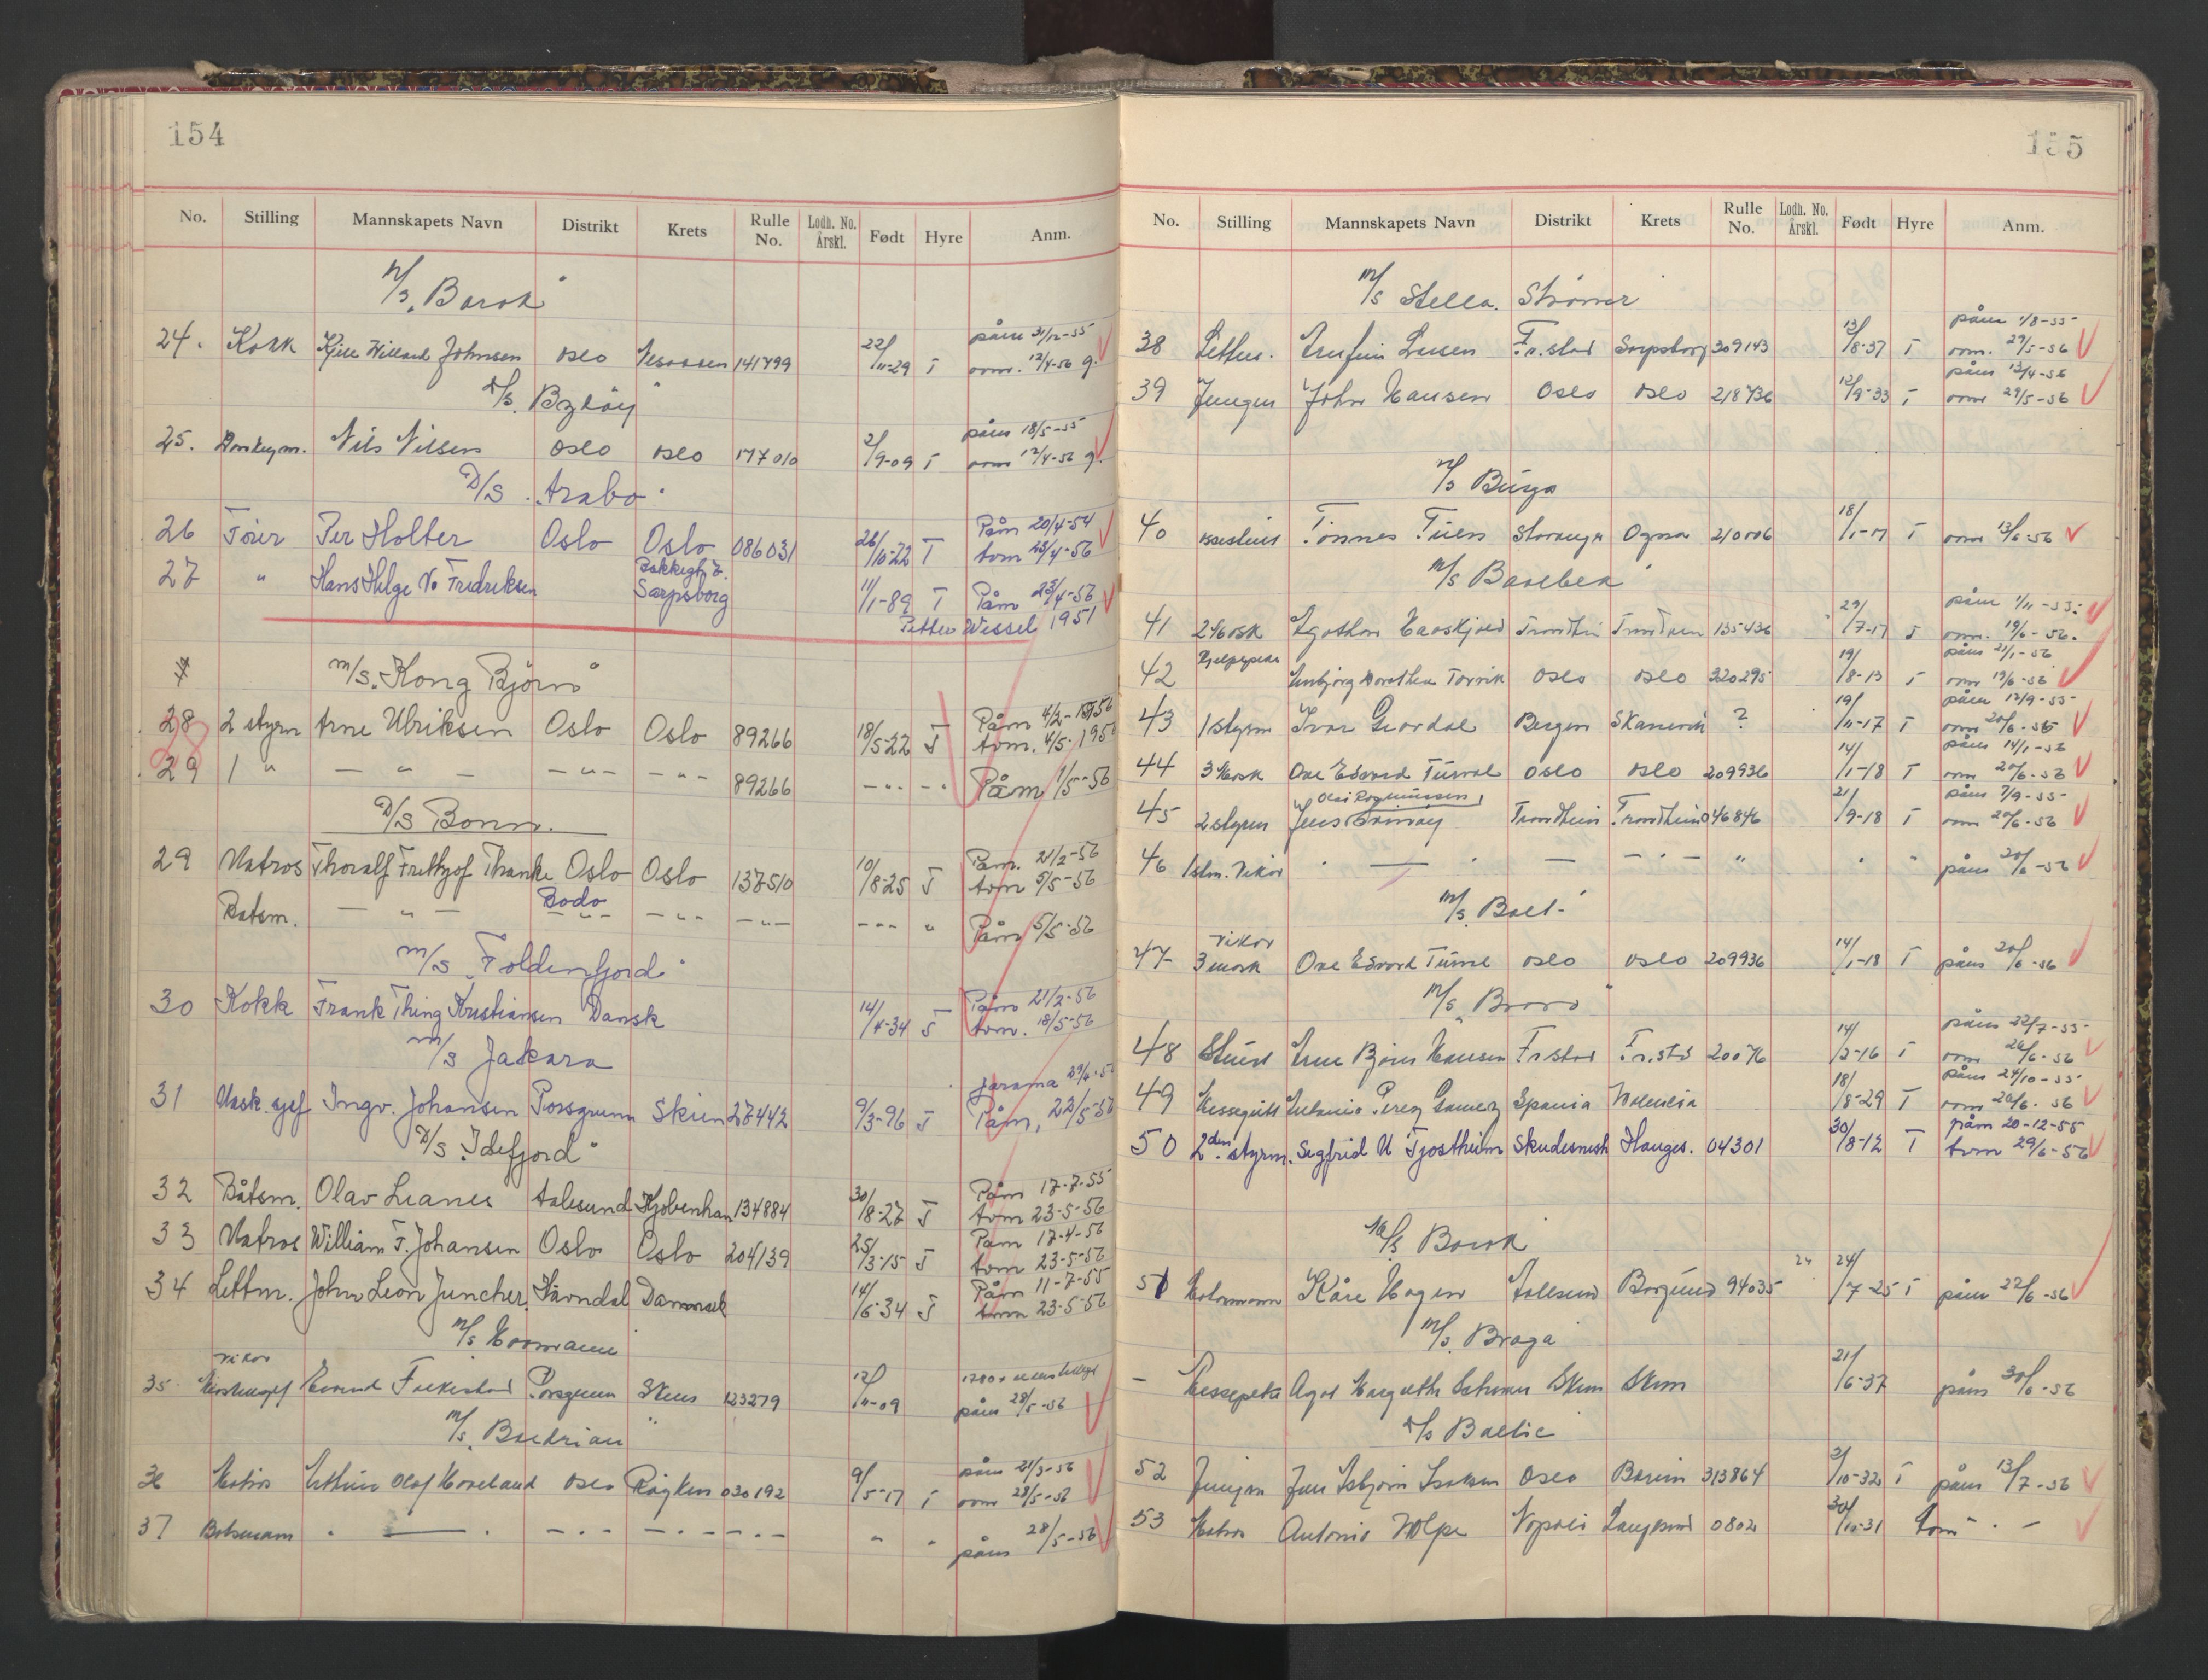 154
No. Stilling Mannskapets Navn Distrikt Krets Rulle No. Lodh. No. Årskl. Født Hyre Anm.
M/S "Barok"
24. Kokk Kjell Willard Johnsen Oslo Nesodden 141799 22/11-29 T påm 31/12-55
avm. 12/4-56 g.
"Byløy"
25. Donkeym. Nils Nilsen Oslo Oslo 177010 2/9-09 T påm 18/5-55
avm 12/4-56 g.
D/S "Arabo"
26 Fører Per Holter Oslo Oslo 086031 26/10-22 T Påm 20/4-54
avm 23/4-56
27 " Hans Helge V. Fredriksen Bakkegt. 7. Sarpsborg 11/1-89 T Påm 23/4-56
Petter Wessel 1951
M/S. "Kong Bjørn"
28 2 styrm Arne Ulriksen Oslo Oslo 89266 18/5-22 T Påm 4/2-1956
avm. 4/5-1956
29 1 " — " — — " — — " — 89266 — " — " Påm 1/5-56
D/S Bonn.
29 Matros Thoralf Frettyof Thanke Oslo Oslo 137510 10/8-25 T Påm. 21/2-56
avm 5/5-56
Bodo
Batsm. — " — — " — — " — — " — — " — " Påm 5/5-56
M/S "Foldenfjord"
30 Kokk Frank Thing Kristiansen Dansk 14/4-34 T Påm 21/2-56
avm. 18/5-56
M/S Jakara
31 Mask. sjef Ingv. Johansen Porsgrunn Skien 27442 9/3-96 T Jarama
Påm, 22/5-56
D/S "Idefjord"
32 Båtsm. Olav Leanes Aalesund Kjøbenhan 134884 30/8-27 T Påm 17-7-55
avm 23-5-56
33 Matros William F. Johansen Oslo Oslo 204139 25/3-15 T Påm 17-4-56
avm 23-5-56
34 Lettm. John Leon Juncher Danmark 14/6-34 T Påm 11-7-55
avm 23-5-56
M/S
vikar
35 Porsgrunn Skien 123279 12/11-09
påm 28/5-56
M/S "Baldrian"
36 Matros Olaf Hoveland Oslo Røyken 030192 9/5-17 T påm 21/3-56
avm 28/5-56
37 Botsmann " — " — " — — " — — " — " " påm 28/5-56
155
No. Stilling Mannskapets Navn Distrikt Krets Rulle No. Lodh. No. Årskl. Født Hyre Anm.
M/S Stella.
38 Lettm. Larsen Fr.stad Sarpsborg 309143 13/8-37 T påm 1/8-55
avm. 29/5-56
39 Jungm John Hansen Oslo Oslo 218736 12/9-33 T påm 12/4-56
avm 29/5-56
M/S
40 Tønnes Tuen Stavanger Ogna 210006 18/1-17 T avm 13/6-56
M/S "Baalbek"
41 2 Mask Trondheim Trondheim 135436 29/7-17 T påm 1/11-55.
avm. 19/6-56.
42 Dorothea Oslo Oslo 320295 19/8-13 T påm 21/1-56
avm 19/6-56
43 1 styrm Ivar Bergen ? 19/11-17 T påm 12/9-55
avm 20/6-56
44 3 Mask Ove Edvard Oslo Oslo 209936 14/1-18 T påm 14/1-56
avm 20/6-56
45 2 styrm Jens Trondheim Trondheim 046846 21/9-18 T påm 7/9-55
avm 20/6-56
46 1 stm. vikar " — " — — " — " " " påm 20/6-56
M/S "Balt"
vikar
47 3 mask Ove Edvard Oslo Oslo 209936 14/1-18 T påm 20/6-56
M/S "Bravo"
48 Bjørn Hansen Fr.stad Fr.std 20076 14/2-16 T påm 22/7-55
avm 26/6-56
49 Messegutt Perez Gomez Spania Valencia 18/8-29 T påm 24/10-55
avm 26/6-56
50 2den styrm. Segfrid U Tjostheim Skudesnesh Hauges. 04301 30/8-12 T påm 20-12-55
avm 29/6-56
M/S Barok
51 Motormann Kåre Hagen Aalesund Borgund 94035 24 24/7-25 T påm 22/6-56
M/S. Braga
— Messepike Skien Skien 21/6-37 påm 30/6-56
Baltic
52 Jungm Jan Isaksen Oslo Bærum 313864 2/10-32 T påm 13/7-56
53 Matros Antonio Volpe Napoli 0802 30/10-31 avm " —